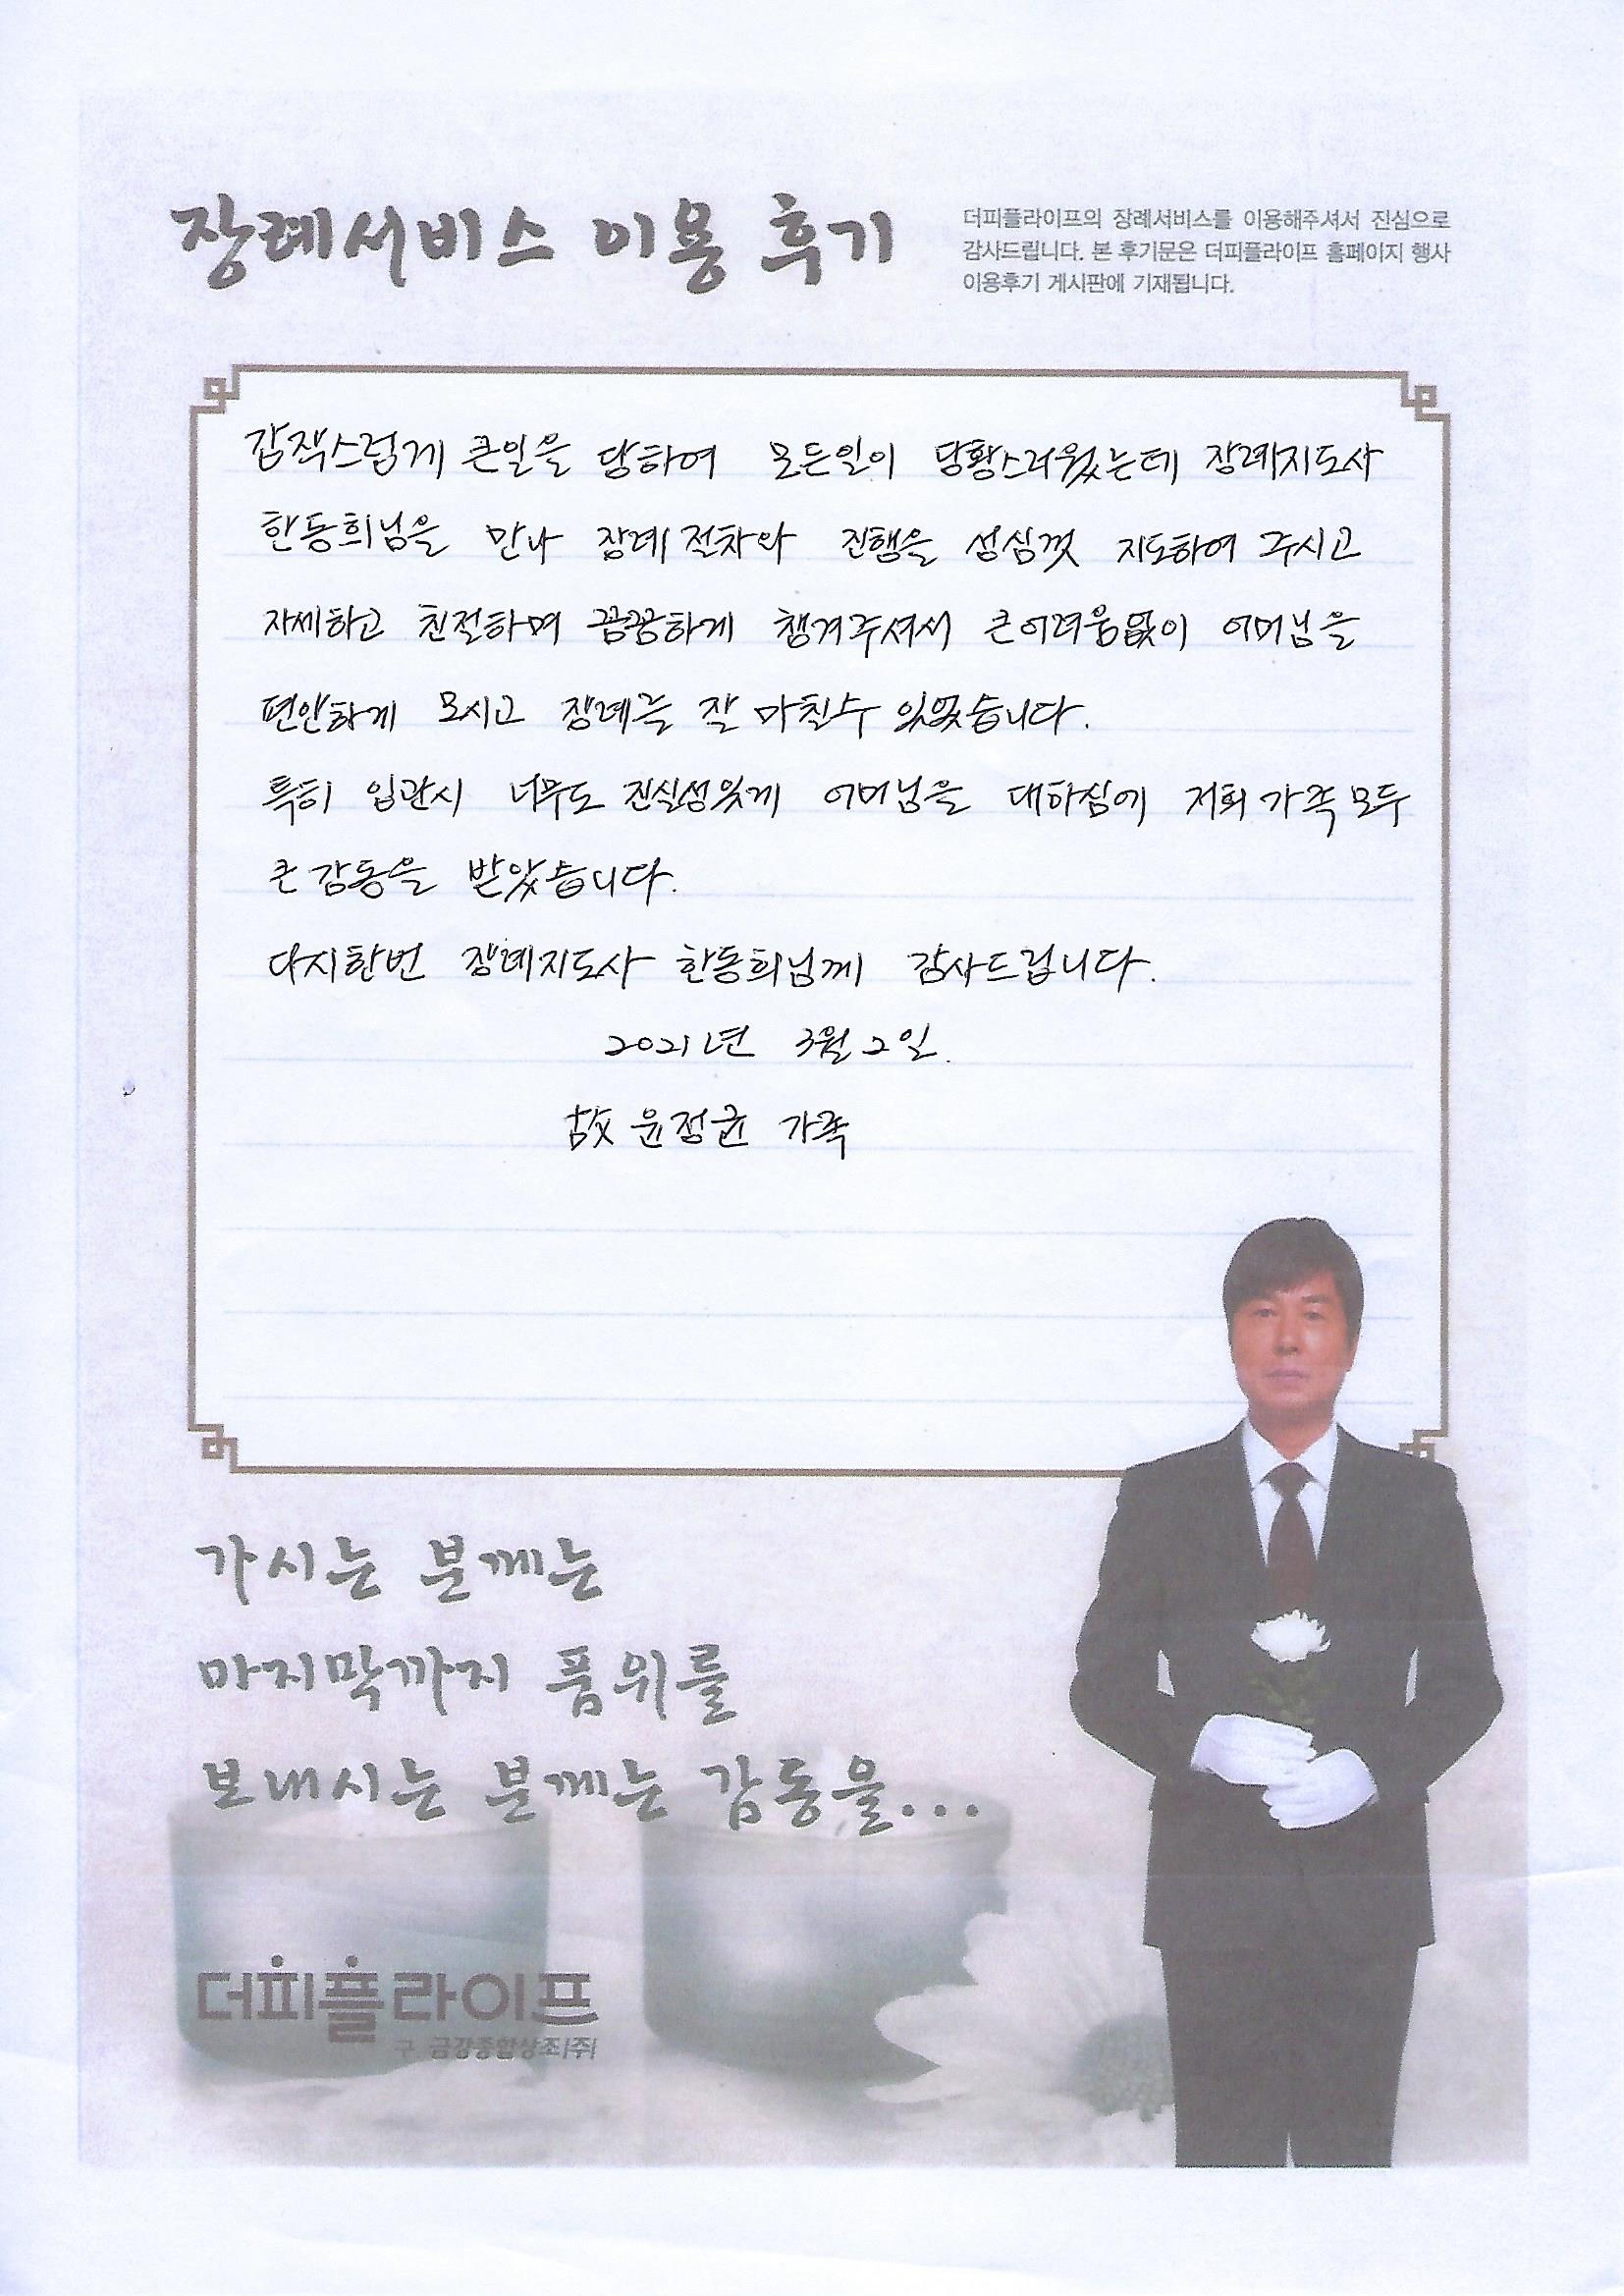 장례서비스 이용 후기
더피플라이프의 장례서비스를 이용해주셔서 진심으로
감사드립니다. 본 후기문은 더피플라이프 홈페이지 행사
이용후기 게시판에 기재됩니다.
갑작스럽게 큰일을 당하여 모든일이 당황스러웠는데 장례지도사
한동희님을 만나 장례 절차와 진행을 성심껏 지도하여 주시고
자세하고 친절하며 꼼꼼하게 챙겨주셔서 큰어려움없이 어머님을
편안하게 모시고 장례를 잘 마칠수 있었습니다.
특히 입관시 너무도 진실성있게 어머님을 대하심에 저희 가족 모두
큰 감동을 받았습니다.
다시한번 장례지도사 한동희님께 감사드립니다.
2021년 3월 2일.
故 윤정균 가족
가시는 분께는
마지막까지 품위를
보내시는 분께는 감동을...
더피플라이프
구 금강종합상조(주)